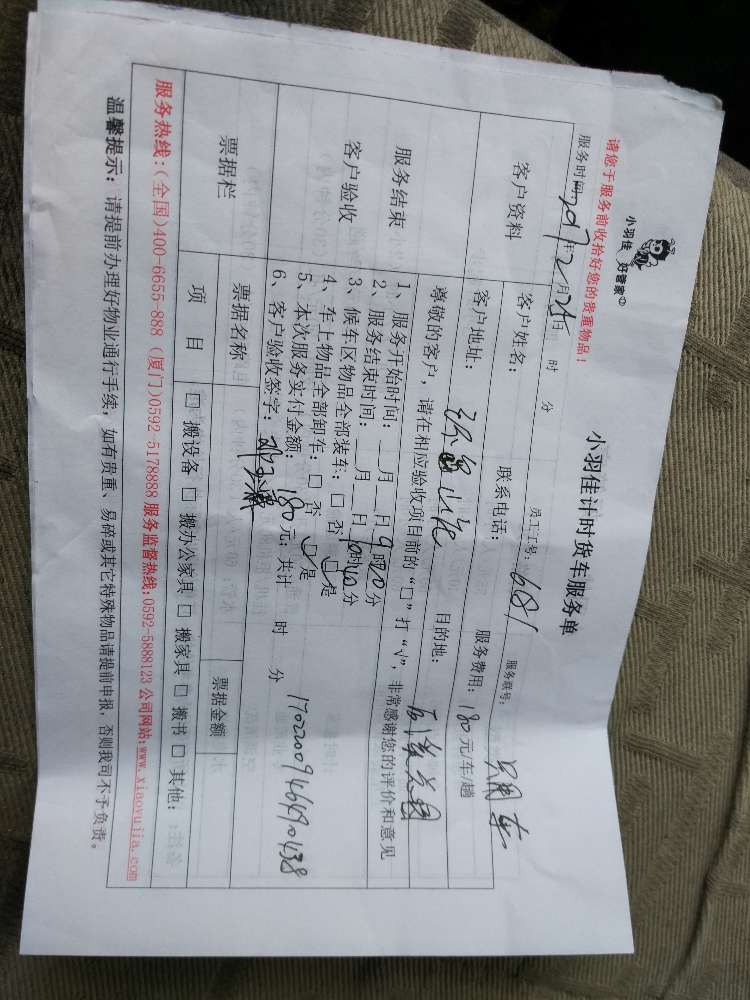 小羽佳 好管家
小羽佳计时货车服务单
请您于服务前收拾好您的贵重物品！
服务时间：2017年2月25日 时 分 员工工号：681 服务联号：
客户资料
客户姓名： 联系电话： 服务费用：180元/车/趟
客户地址： 目的地：
服务结束
客户验收
尊敬的客户，请在相应验收项目前的“□”打“√”，非常感谢您的评价和意见
1、服务开始时间：__月__日9时20分
2、服务结束时间：__月__日10时10分
3、候车区物品全部装车：□ 否 □ 是
4、车上物品全部卸车：□ 否 □ 是
5、本次服务实付金额：180元；共计 时 分
6、客户验收签字：
17022009466690438
票据栏
票据名称 票据金额
项 目
□ 搬设备 □ 搬办公家具 □ 搬家具 □ 搬书 □ 其他：
服务热线：(全国)400-6655-888 (厦门)0592-5178888 服务监督热线：0592-5888123 公司网站：www.xiaoyujia.com
温馨提示：请提前办理好物业通行手续，如有贵重、易碎或其它特殊物品请提前申报，否则我司不予负责。